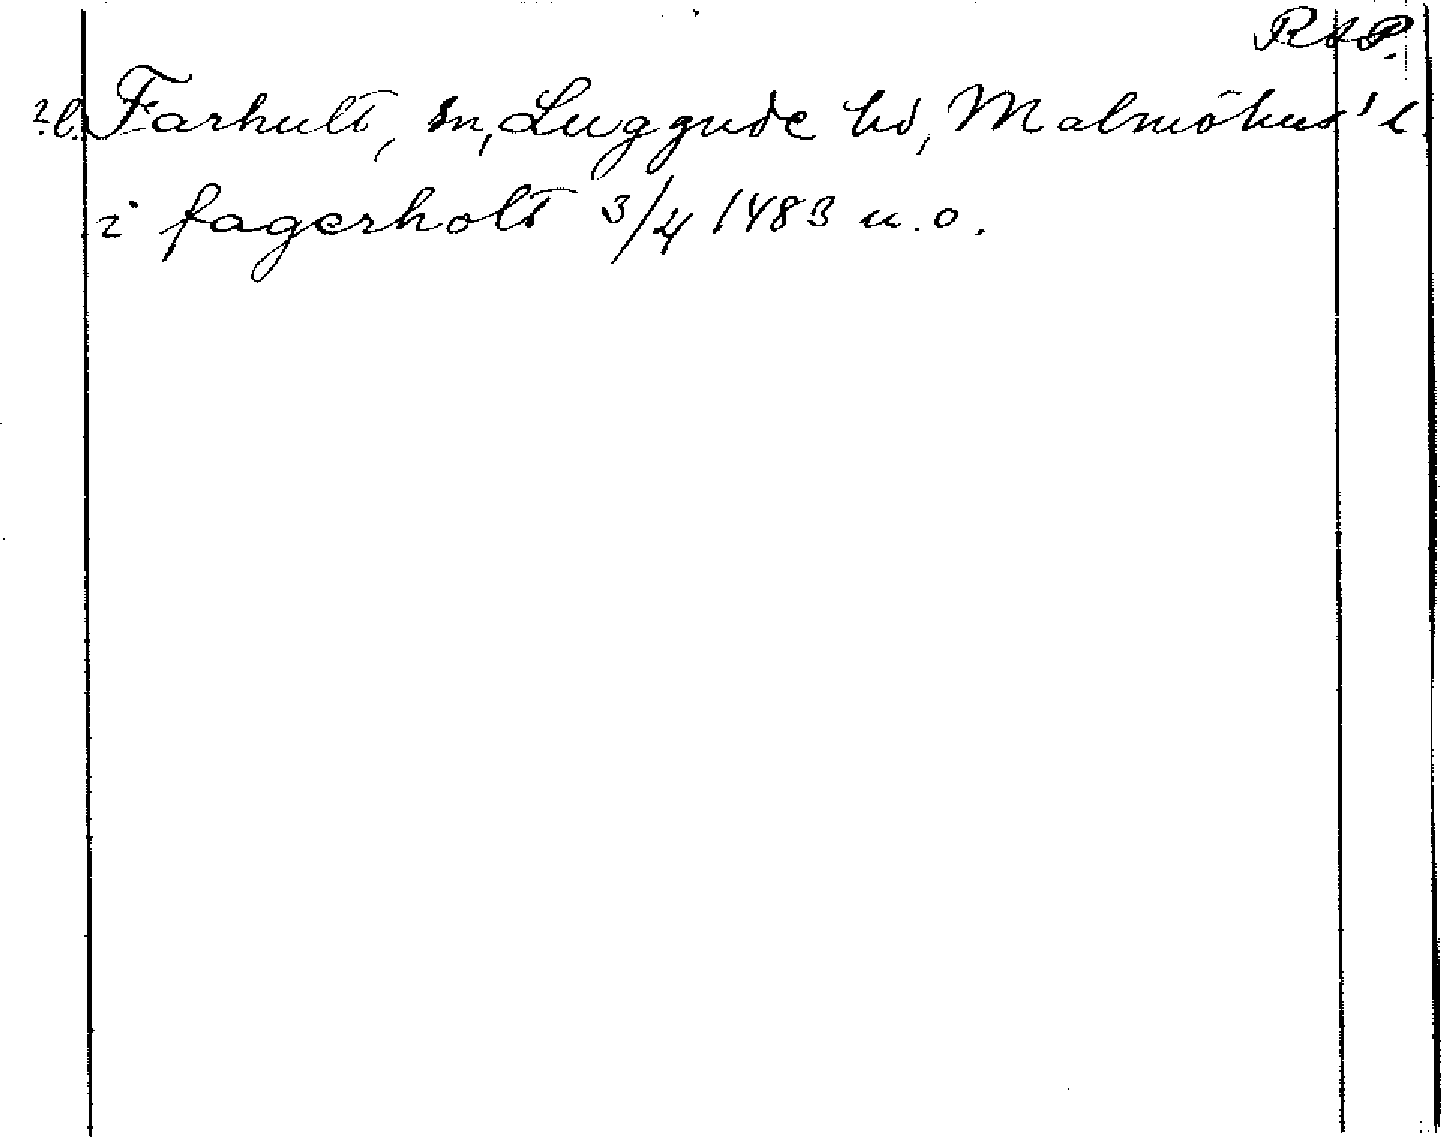 RAP.
?l. Farhult, sn, Luggude hd, Malmöhus' l.
i fagerholt 3/4 1483 u.o.